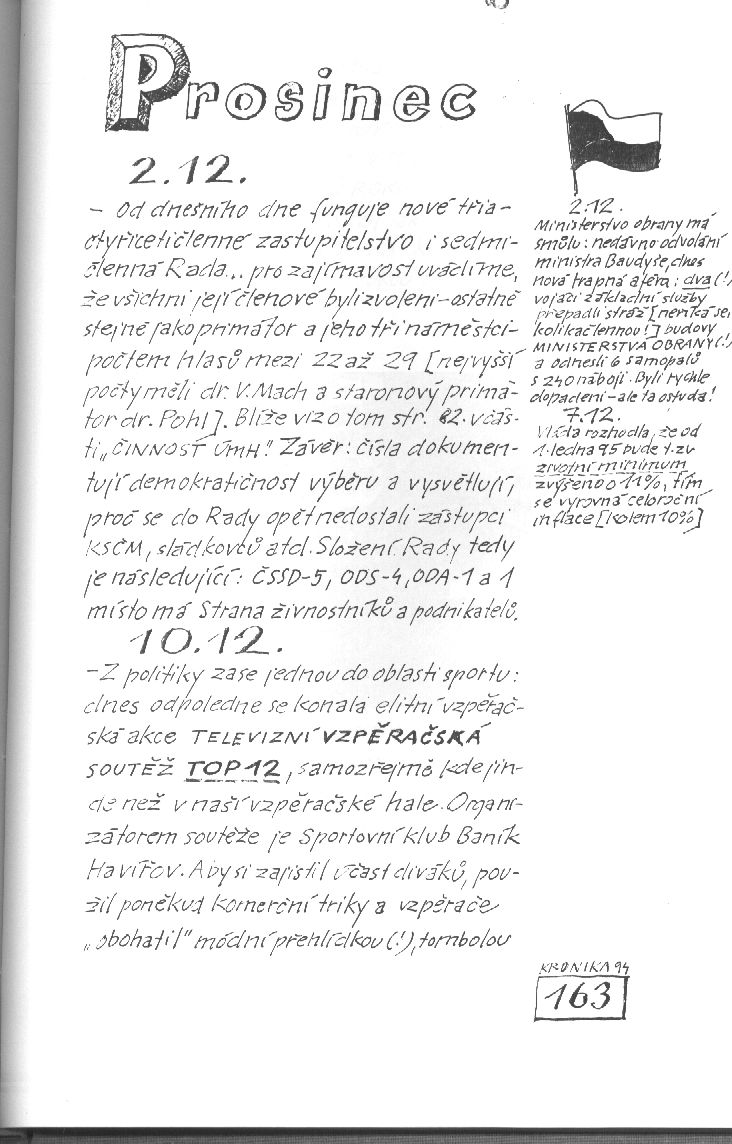 Prosinec
2.12.
– Od dnešního dne funguje nové třia-
čtyřicetičlenné zastupitelstvo i sedmi-
členná Rada... pro zajímavost uvádíme,
že všichni její členové byli zvoleni – ostatně
stejně jako primátor a jeho tři náměstci –
počtem hlasů mezi 22 až 29 [nejvyšší
počty měli dr. V. Mach a staronový primá-
tor dr. Pohl]. Blíže viz o tom str. 82. v čás-
ti „ČINNOST ÚMH". Závěr: čísla dokumen-
tují demokratičnost výběru a vysvětlují,
proč se do Rady opět nedostali zástupci
KSČM, sládkovců atd. Složení Rady tedy
je následující: ČSSD-5, ODS-4, ODA-1 a 1
místo má Strana živnostníků a podnikatelů.
10.12.
– Z politiky zase jednou do oblasti sportu:
dnes odpoledne se konala elitní vzpěrač-
ská akce TELEVIZNÍ VZPĚRAČSKÁ
SOUTĚŽ TOP 12, samozřejmě kde jin-
de než v naší vzpěračské hale. Organi-
zátorem soutěže je Sportovní klub Baník
Havířov. Aby si zajistil účast diváků, pou-
žil poněkud komerční triky a vzpěrače
„obohatil" módní přehlídkou (!), tombolou
2.12.
Ministerstvo obrany má
smůlu: nedávno odvolání
ministra Baudyše, dnes
nová trapná aféra: dva (!)
vojáci základní služby
přepadli stráž [neříká se,
kolikačlennou!] budovy
MINISTERSTVA OBRANY (!)
a odnesli 6 samopalů
s 240 náboji. Byli rychle
dopadeni – ale ta ostuda!
7.12.
Vláda rozhodla, že od
1. ledna 95 bude t. zv
životní minimum
zvýšeno o 11%, tím
se vyrovná celoroční
inflace [kolem 10%]
KRONIKA 94
163